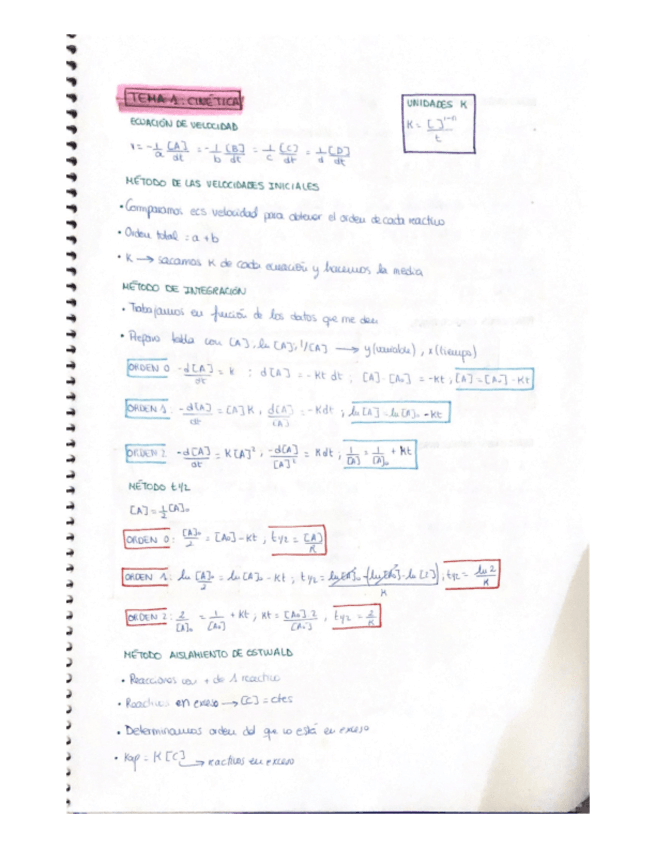 TEMA 1: CINÉTICA
UNIDADES K
K = [ ]¹⁻ⁿ / t
ECUACIÓN DE VELOCIDAD
v = -1/a [A]/dt = -1/b [B]/dt = 1/c [C]/dt = 1/d [D]/dt
MÉTODO DE LAS VELOCIDADES INICIALES
• Comparamos ecs velocidad para obtener el orden de cada reactivo
• Orden total : a + b
• K → sacamos K de cada ecuación y hacemos la media
MÉTODO DE INTEGRACIÓN
• Trabajamos en función de los datos que me den
• Preparo tabla con [A], ln [A], 1/[A] → y (variable), x (tiempo)
ORDEN 0 -d[A]/dt = K : d[A] = -Kt dt ; [A]-[A₀] = -Kt ; [A] = [A₀] - Kt
ORDEN 1 : -d[A]/dt = [A] K , d[A]/[A] = -Kdt ; ln [A] = ln [A]₀ - Kt
ORDEN 2 -d[A]/dt = K[A]² ; -d[A]/[A]² = Kdt ; 1/[A] = 1/[A]₀ + Kt
MÉTODO t1/2
[A] = 1/2 [A]₀
ORDEN 0 : [A]₀/2 = [A₀] - Kt , t1/2 = [A]/K
ORDEN 1 : ln [A]₀/2 = ln [A]₀ - Kt ; t1/2 = ln [A]₀ - (ln [A]₀ - ln [2])/K , t1/2 = ln 2/K
ORDEN 2 : 2/[A]₀ = 1/[A₀] + Kt ; Kt = [A₀] 2/[A₀] , t1/2 = 2/K
MÉTODO AISLAMIENTO DE OSTWALD
• Reacciones con + de 1 reactivo
• Reactivos en exceso → [C] = ctes
• Determinamos orden del que no está en exceso
• Kap = K [C] → reactivos en exceso